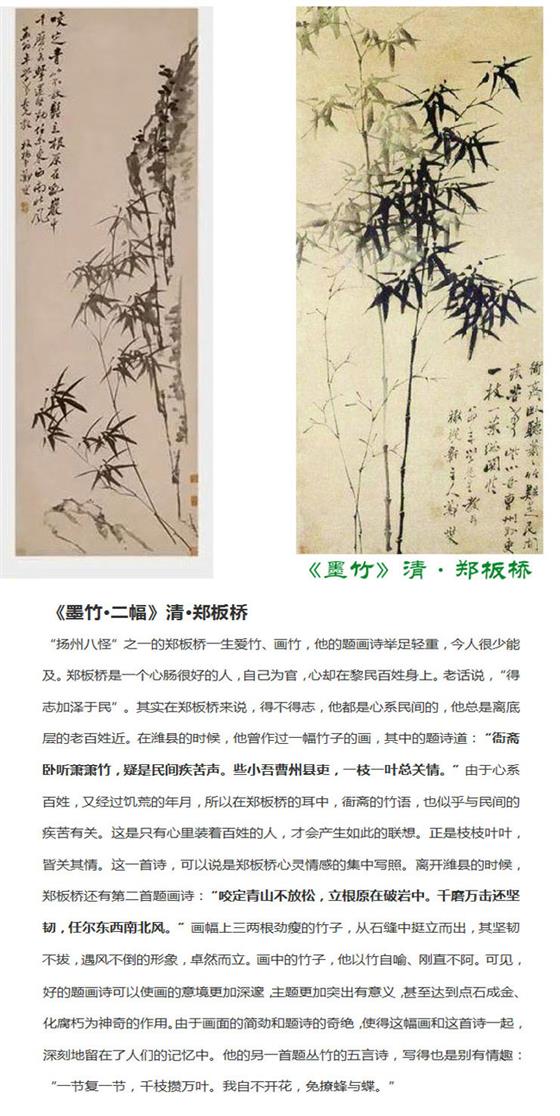 咬定青山不放鬆立根原在乱巖中
千磨万擊還堅勁任尔東西南北風
板橋鄭燮
衙齋臥聽蕭蕭竹疑是民間
疾苦聲些小吾曹州縣吏
一枝一葉總關情
《墨竹》清·郑板桥
《墨竹·二幅》清·郑板桥
“扬州八怪”之一的郑板桥一生爱竹、画竹，他的题画诗举足轻重，今人很少能
及。郑板桥是一个心肠很好的人，自己为官，心却在黎民百姓身上。老话说，“得
志加泽于民”。其实在郑板桥来说，得不得志，他都是心系民间的，他总是离底
层的老百姓近。在潍县的时候，他曾作过一幅竹子的画，其中的题诗道：“衙斋
卧听萧萧竹，疑是民间疾苦声。些小吾曹州县吏，一枝一叶总关情。”由于心系
百姓，又经过饥荒的年月，所以在郑板桥的耳中，衙斋的竹语，也似乎与民间的
疾苦有关。这是只有心里装着百姓的人，才会产生如此的联想。正是枝枝叶叶，
皆关其情。这一首诗，可以说是郑板桥心灵情感的集中写照。离开潍县的时候，
郑板桥还有第二首题画诗：“咬定青山不放松，立根原在破岩中。千磨万击还坚
韧，任尔东西南北风。”画幅上三两根劲瘦的竹子，从石缝中挺立而出，其坚韧
不拔，遇风不倒的形象，卓然而立。画中的竹子，他以竹自喻、刚直不阿。可见，
好的题画诗可以使画的意境更加深邃，主题更加突出有意义，甚至达到点石成金、
化腐朽为神奇的作用。由于画面的简劲和题诗的奇绝，使得这幅画和这首诗一起，
深刻地留在了人们的记忆中。他的另一首题丛竹的五言诗，写得也是别有情趣：
“一节复一节，千枝攒万叶。我自不开花，免撩蜂与蝶。”